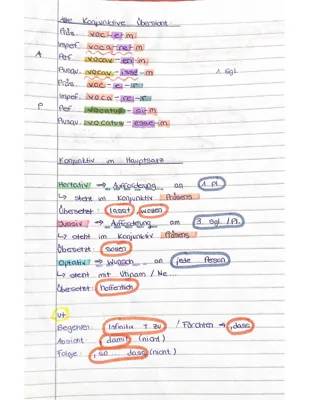 Alle Konjunktive Übersicht
Präs. voc-e-m
Impef. voca-re-m
A Pef. vocav-eri-m
Pusqu. vocav-isse-m 1. Sgl.
Präs. voc-e-r
Impef. voca-re-r
P Pef. vocatus-si-m
Pusqu. vocatus-esse-m
Konjunktiv im Hauptsatz
Hortativ → Aufforderung an 1. Pl.
↳ steht im Konjunktiv Präsens
Übersetzt: lasst, wollen
Jussiv → Aufforderung am 3. Sgl./Pl.
↳ steht im Konjunktiv Präsens
Übersetzt: sollen
Optativ → Wunsch an jede Person
↳ steht mit Utinam / Ne...
Übersetzt: hoffentlich
ut
Begehren: Infinitiv + zu / Fürchten → , dass
Absicht: damit (nicht)
Folge: , so ... dass (nicht)